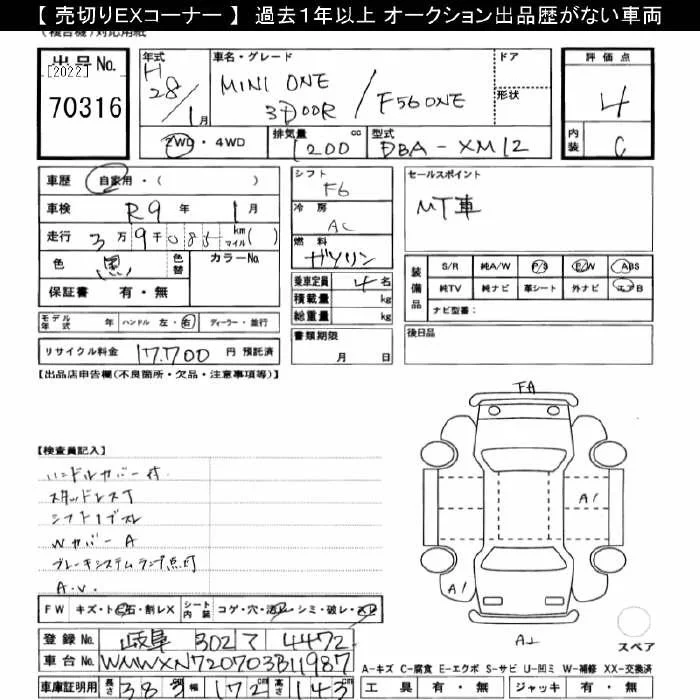 【 売切りEXコーナー 】 過去１年以上 オークション出品歴がない車両
出品No.
[2022]
70316
年式
H
28/1月
車名・グレード
MINI ONE
3DOOR / F56 ONE
ドア
形状
評価点
4
内装
C
2WD ・ 4WD
排気量 cc
1200
型式
DBA-XM12
車歴 自家用・( )
車検 R9年 1月
走行 3万9千085 km マイル( )
色 黒 色替 カラーNo.
保証書 有・無
シフト
F6
冷房
AC
燃料
ガソリン
乗車定員 4名
積載量 kg
総重量 kg
セールスポイント
MT車
装備品
S/R 純A/W P/S P/W ABS
純TV 純ナビ 革シート 外ナビ エアB
ナビ型番：
モデル年式 年 ハンドル 左・右 ディーラー・並行
リサイクル料金 17,700 円 預託済
書類期限
月 日
後日品
【出品店申告欄(不良箇所・欠品・注意事項等)】
FA
【検査員記入】
ハンドルカバー付
スタッドレスT
シフトノブスレ
WカバーA
ブレーキシステムランプ点灯
A.V.
A1
A1
FW キズ・ト石・割レX シート内装 コゲ・穴・
シミ・破レ・スレ
スペア
登録No. 岐阜 302 て 4472
車台No. WMWXN720703B11987
車庫証明用 長さ 383 cm 幅 172 cm 高さ 143 cm
A-キズ C-腐食 E-エクボ S-サビ U-凹ミ W-補修 XX-交換済
工具 有・無 ジャッキ 有・無